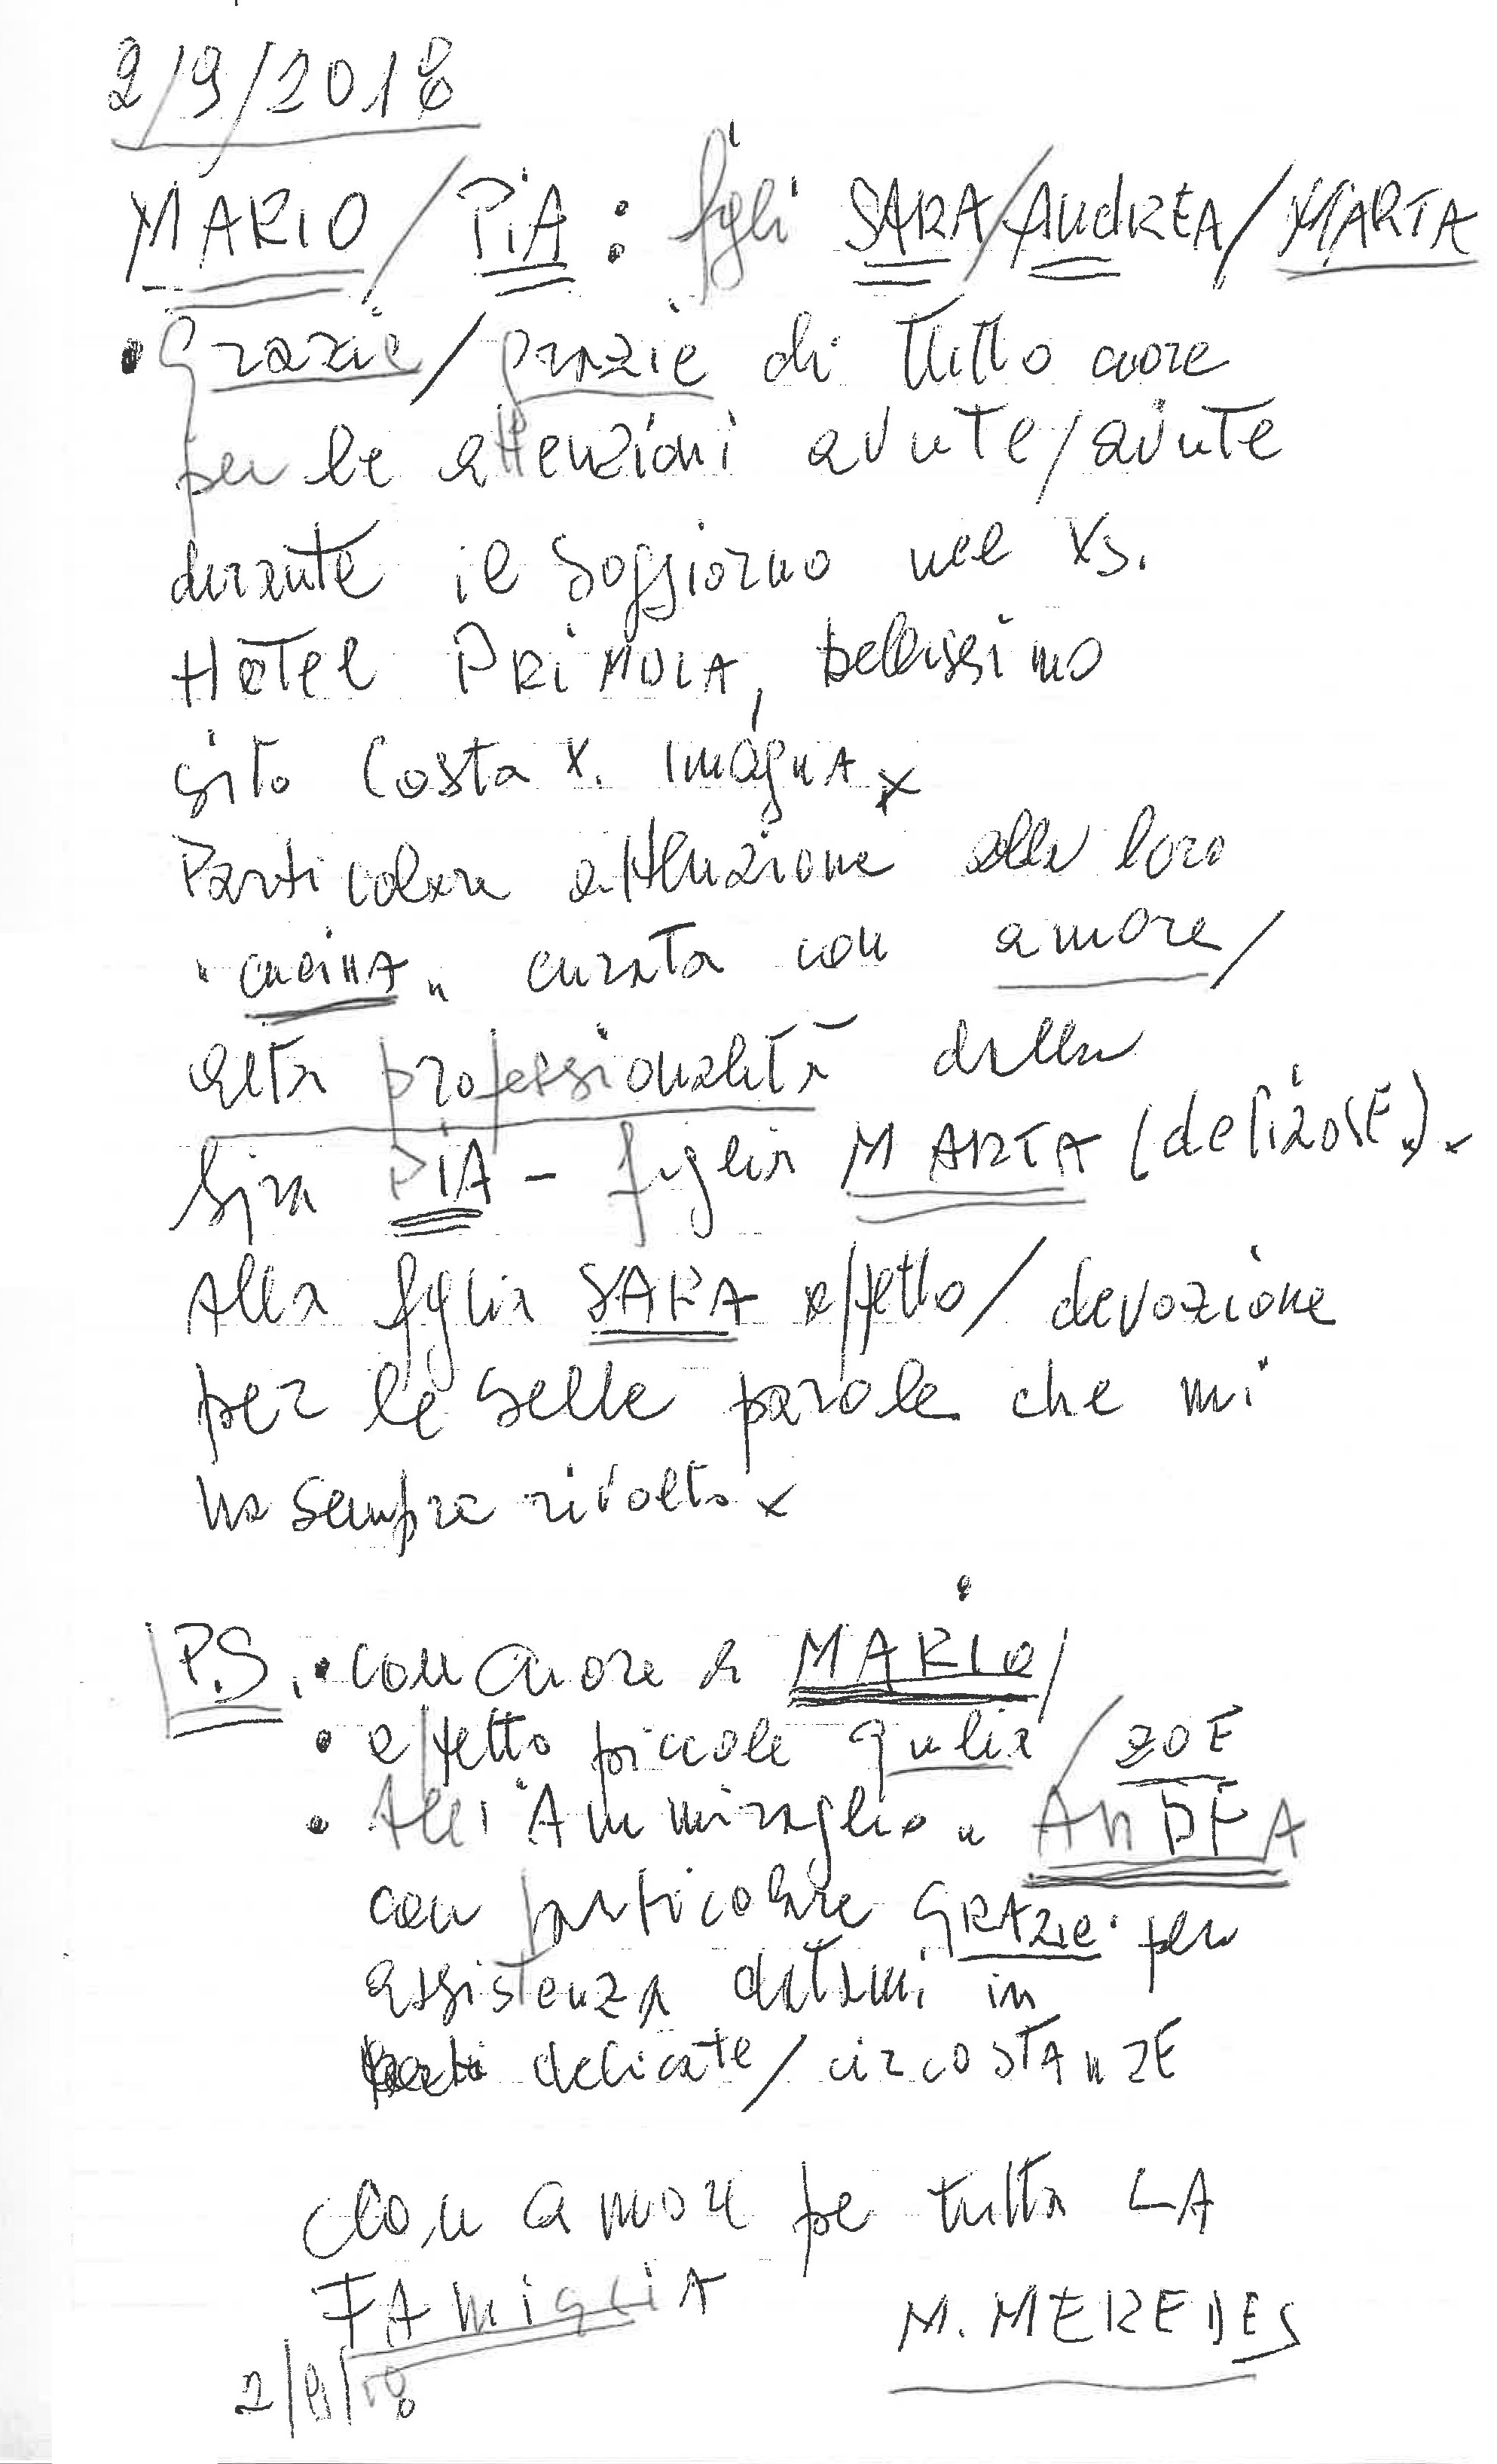 2/9/2018
MARIO/PiA: figli SARA/AndREA/MARTA
• Grazie/grazie di tutto cuore
per le attenzioni avute/avute
durante il soggiorno nel Vs.
Hotel PRiMULA, bellissimo
sito Costa V. imagnA
Particolare attenzione alla loro
"cucinA" curata con amore/
alta professionalità della
Sig.ra PiA - figlia MARTA (deliziose).
Alla figlia SARA affetto/devozione
per le belle parole che mi
ha sempre rivolto
P.S. • con cuore a MARIO/
• affetto piccole Giulia/ZOE
• All'Ammiraglio" AnDEA
con particolare GRAZie per
assistenza datami in
delicate/circostAnZE
Con amore pe tutta LA
FAmigliA
M. MEREDES
2/9/18